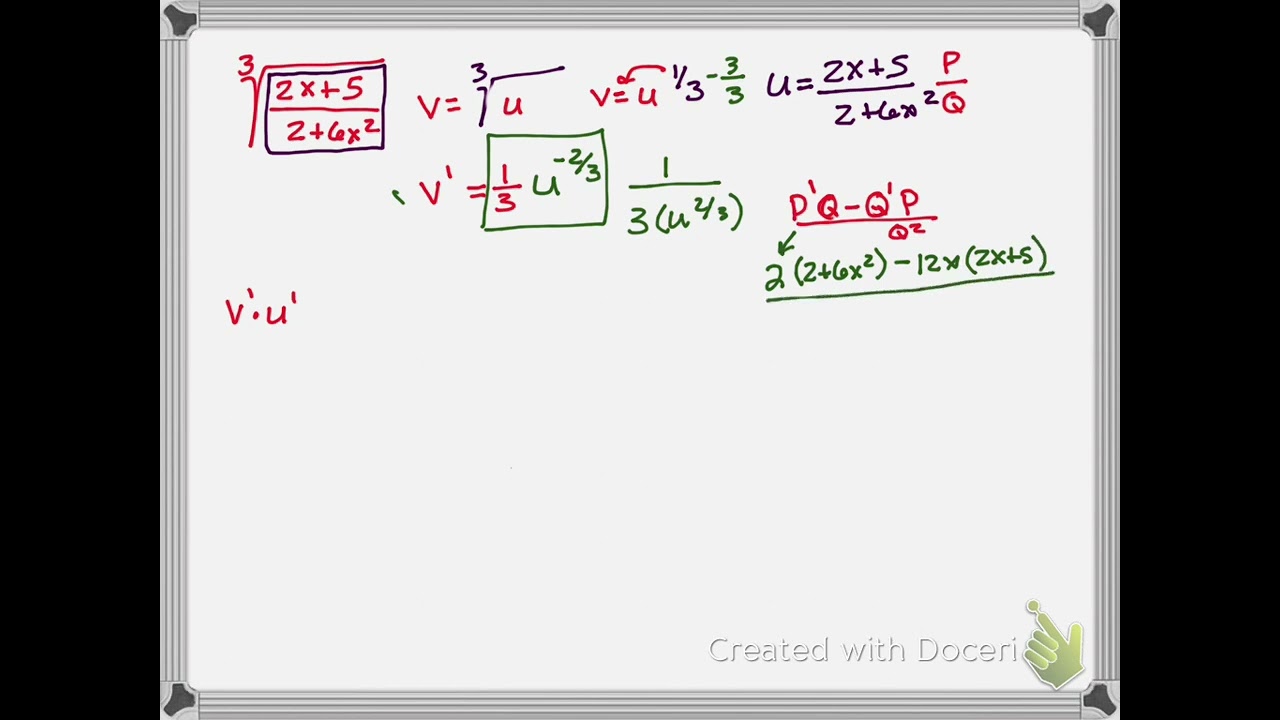 ∛((2x+5)/(2+6x²)) v = ∛u v = u^(1/3 - 3/3) u = (2x+5)/(2+6x²) P/Q
v' = 1/3 u^(-2/3) 1/(3(u^(2/3)))
(P'Q - Q'P)/Q²
2(2+6x²) - 12x(2x+5)
v'·u'
Created with Doceri